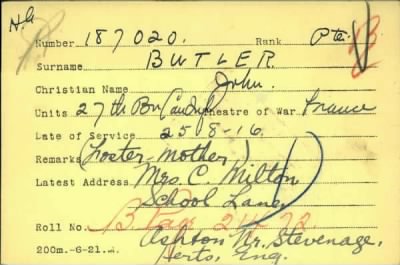 H.Q.
Number 187020. Rank Pte. B
Surname BUTLER.
Christian Name John.
Units 27th Bn Can Inf Theatre of War. France
Date of Service 25-8-16.
Remarks (Foster Mother)
Latest Address Mrs. C. Milton
School Lane,
Roll No. B. Page 21472.
Ashton Nr. Stevenage,
200m.-6-21. Herts, Eng.